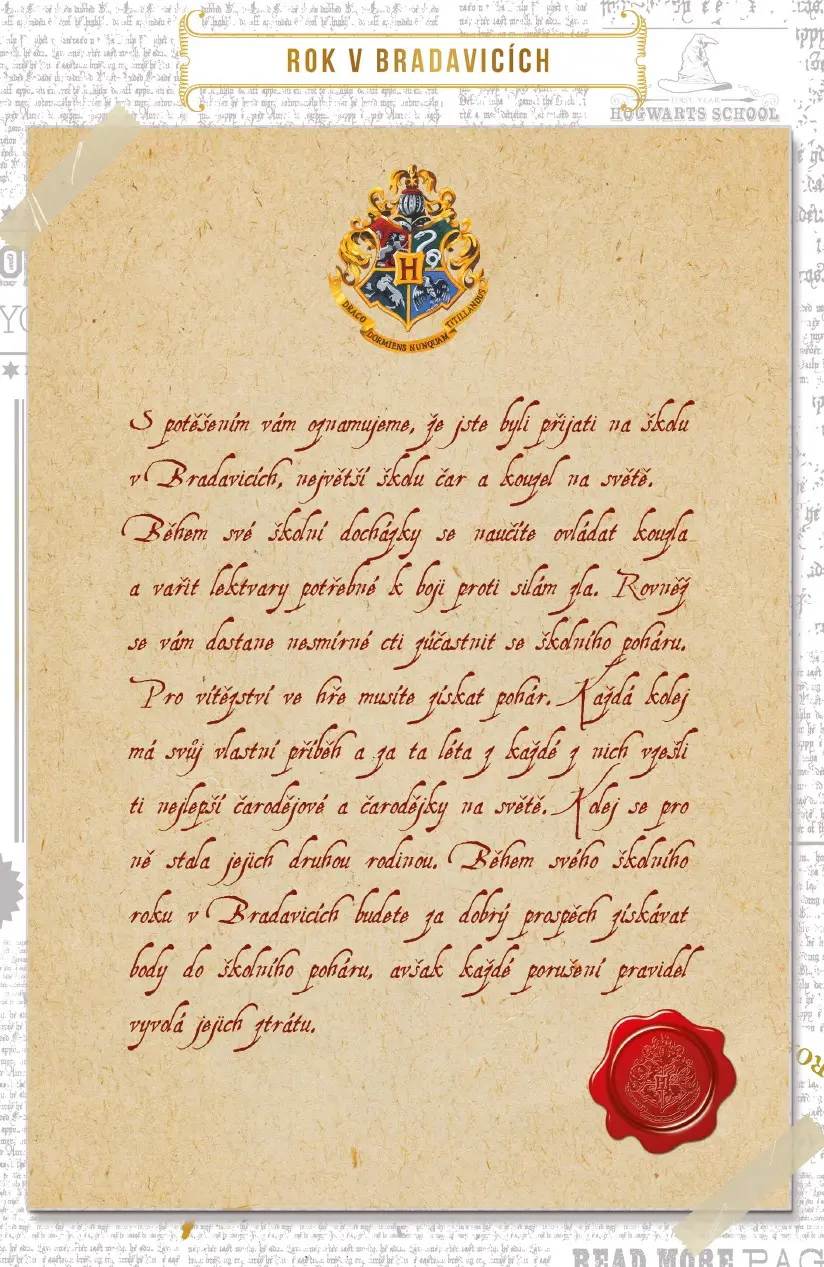 ROK V BRADAVICÍCH
FIRST YEAR
HOGWARTS SCHOOL
H
DRACO
DORMIENS NUNQUAM
TITILLANDUS
S potěšením vám oznamujeme, že jste byli přijati na školu
v Bradavicích, největší školu čar a kouzel na světě.
Během své školní docházky se naučíte ovládat kouzla
a vařit lektvary potřebné k boji proti silám zla. Rovněž
se vám dostane nesmírné cti zúčastnit se školního poháru.
Pro vítězství ve hře musíte získat pohár. Každá kolej
má svůj vlastní příběh a za ta léta z každé z nich vzešli
ti nejlepší čarodějové a čarodějky na světě. Kolej se pro
ně stala jejich druhou rodinou. Během svého školního
roku v Bradavicích budete za dobrý prospěch získávat
body do školního poháru, avšak každé porušení pravidel
vyvolá jejich ztrátu.
H
READ MORE PAG